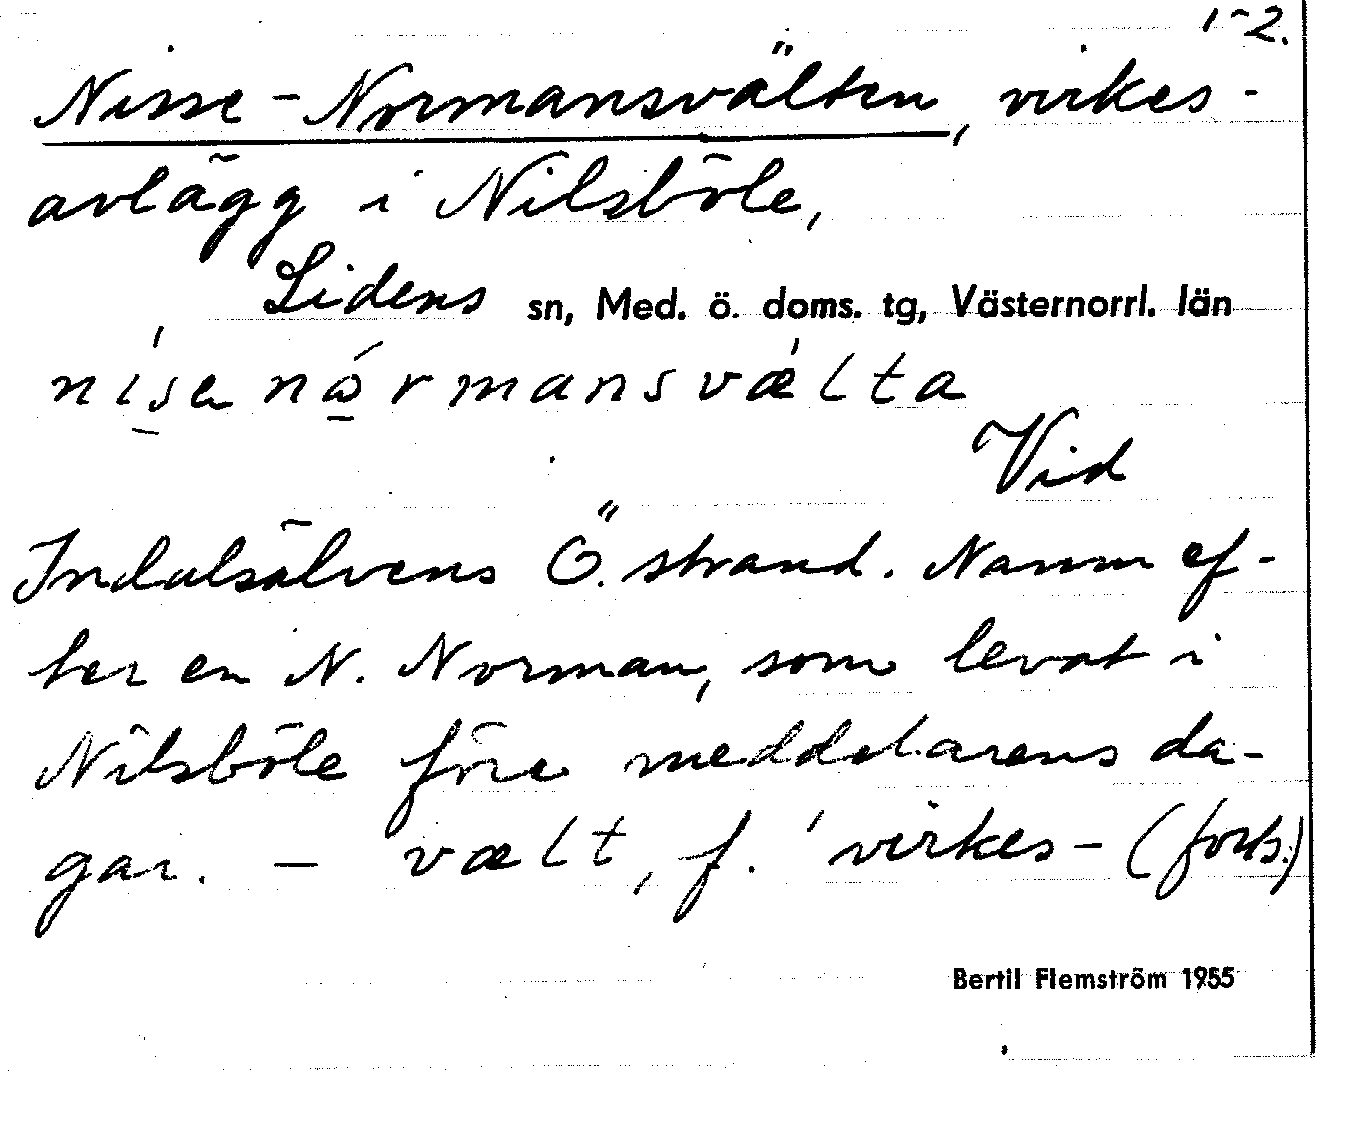 1-2.
Nisse-Normansvälten, virkes-
avlägg i Nilsböle,
Lidens sn, Med. ö. doms. tg, Västernorrl. län
nise nårmansvælta
Vid
Indalsälvens Ö. strand. Namn ef-
ter en N. Norman, som levat i
Nilsböle före meddelarens da-
gar. - vælt, f. 'virkes- (forts.)
Bertil Flemström 1955